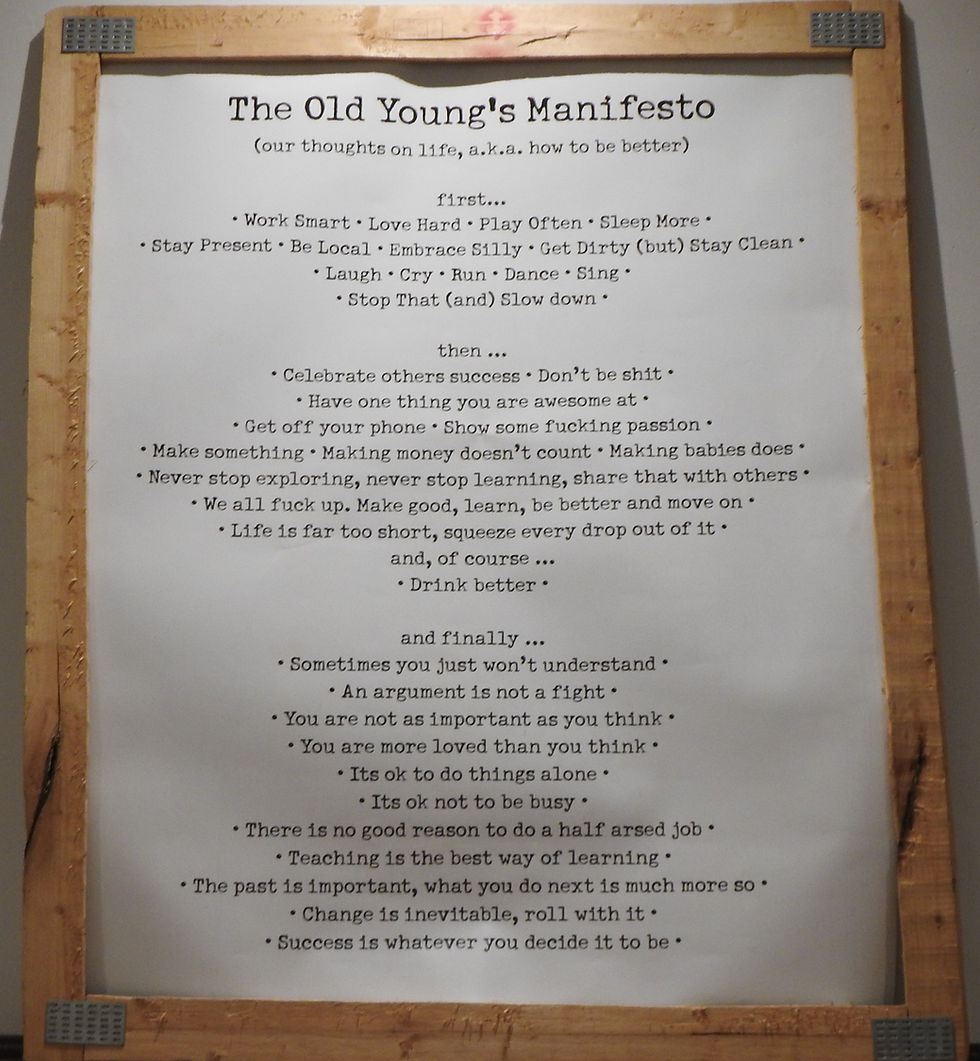 The Old Young's Manifesto
(our thoughts on life, a.k.a. how to be better)
first...
• Work Smart • Love Hard • Play Often • Sleep More •
• Stay Present • Be Local • Embrace Silly • Get Dirty (but) Stay Clean •
• Laugh • Cry • Run • Dance • Sing •
• Stop That (and) Slow down •
then ...
• Celebrate others success • Don't be shit •
• Have one thing you are awesome at •
• Get off your phone • Show some fucking passion •
• Make something • Making money doesn't count • Making babies does •
• Never stop exploring, never stop learning, share that with others •
• We all fuck up. Make good, learn, be better and move on •
• Life is far too short, squeeze every drop out of it •
and, of course ...
• Drink better •
and finally ...
• Sometimes you just won't understand •
• An argument is not a fight •
• You are not as important as you think •
• You are more loved than you think •
• Its ok to do things alone •
• Its ok not to be busy •
• There is no good reason to do a half arsed job •
• Teaching is the best way of learning •
• The past is important, what you do next is much more so •
• Change is inevitable, roll with it •
• Success is whatever you decide it to be •